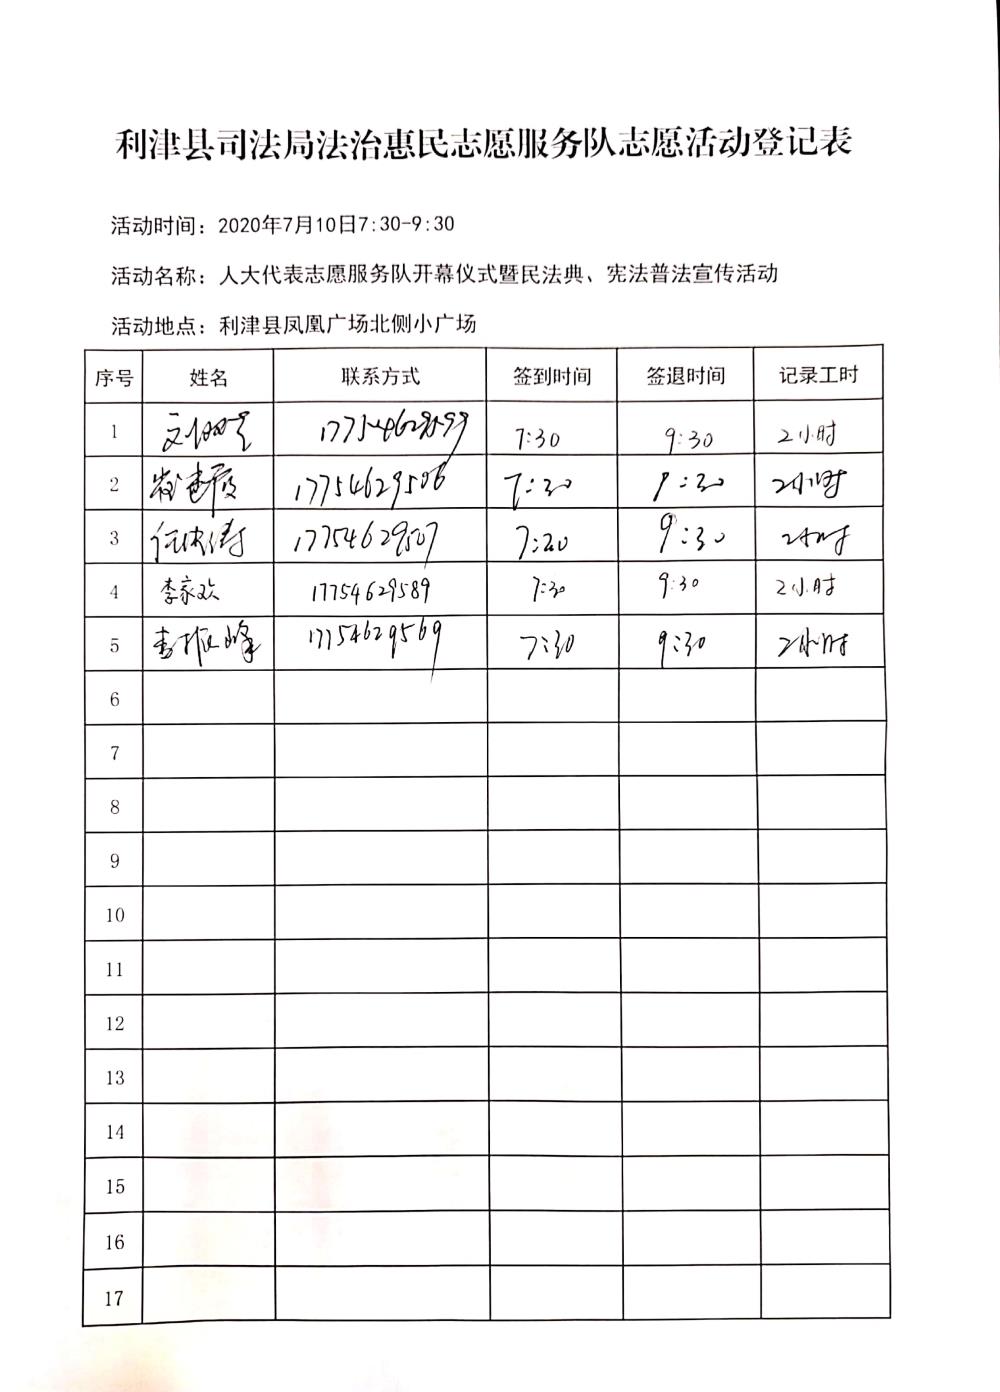 利津县司法局法治惠民志愿服务队志愿活动登记表
活动时间：2020年7月10日7:30-9:30
活动名称：人大代表志愿服务队开幕仪式暨民法典、宪法普法宣传活动
活动地点：利津县凤凰广场北侧小广场
序号 姓名 联系方式 签到时间 签退时间 记录工时
1 17754629599 7:30 9:30 2小时
2 17754629506 7:30 9:30 2小时
3 17754629507 7:30 9:30 2小时
4 李家欢 17754629589 7:30 9:30 2小时
5 李振峰 17754629569 7:30 9:30 2小时
6
7
8
9
10
11
12
13
14
15
16
17